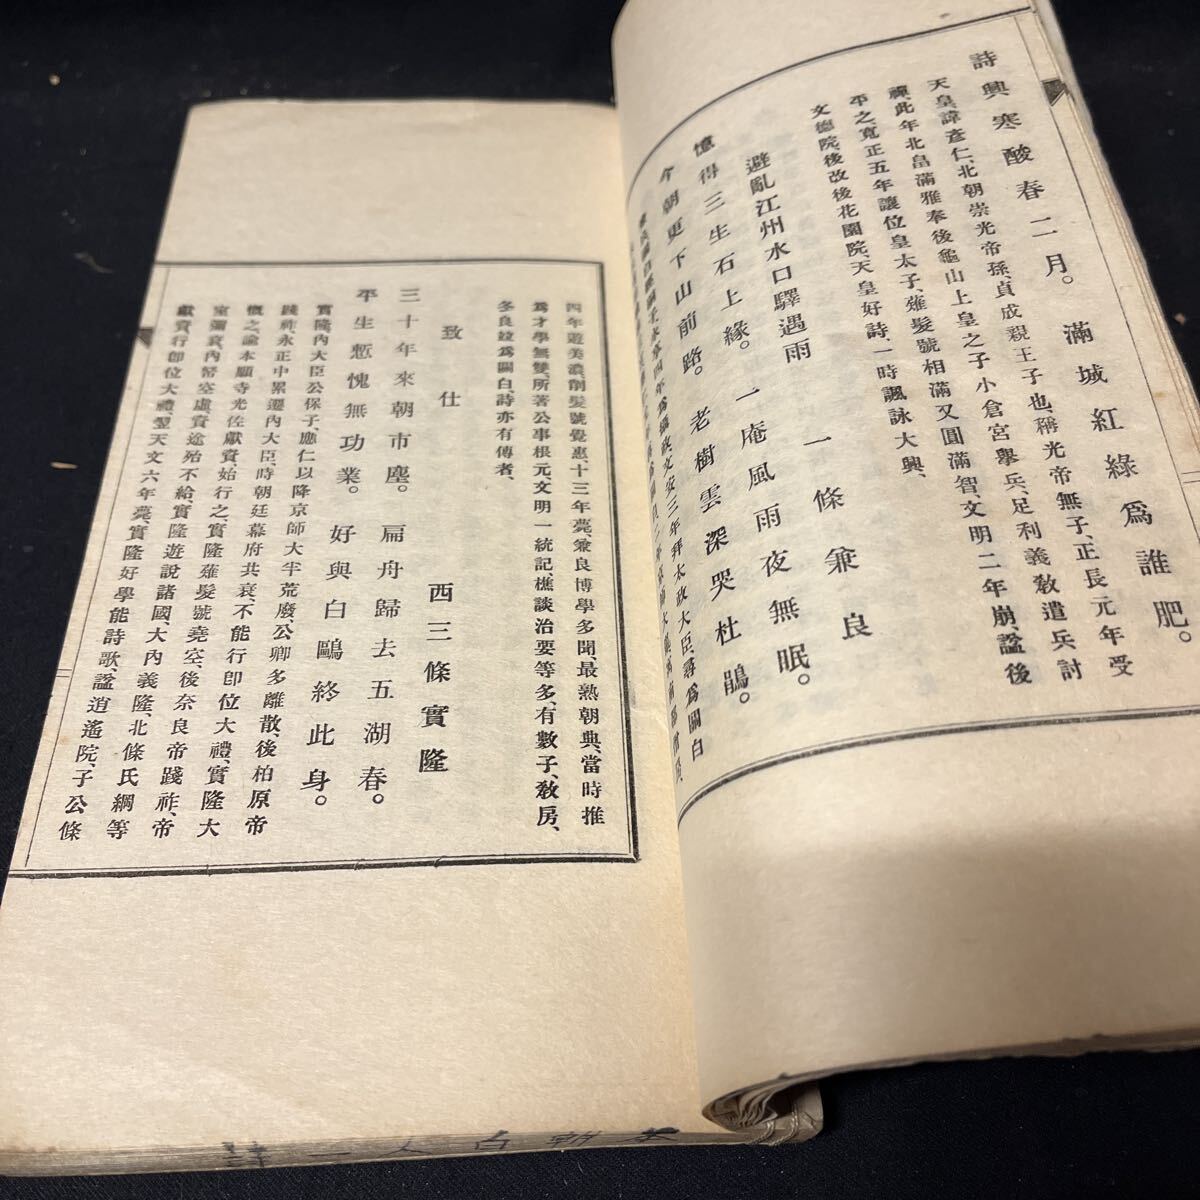 詩興寒酸春二月。滿城紅綠爲誰肥。
天皇、諱彥仁、北朝崇光帝孫、貞成親王子也、稱光帝無子、正長元年受
禪、此年北畠滿雅奉後龜山上皇之子小倉宮擧兵、足利義敎遣兵討
平之、寬正五年讓位皇太子、薙髮號相滿又圓滿智、文明二年崩、謚後
文德院、後改後花園院、天皇好詩、一時諷詠大興、
避亂江州水口驛遇雨　一條兼良
憶得三生石上緣。一庵風雨夜無眠。
今朝更下山前路。老樹雲深哭杜鵑。
年爲攝政、文安三年拜太政大臣、尋爲關白
四年遊美濃、削髮號覺惠十三年薨、兼良博學多聞最熟朝典、當時推
爲才學無雙、所著公事根元、文明一統記樵談治要等多、有數子、敎房、
冬良竝爲關白詩亦有傳者、
致仕　西三條實隆
三十年來朝市塵。扁舟歸去五湖春。
平生慙愧無功業。好與白鷗終此身。
實隆、內大臣公保子、應仁以降京師大半荒廢、公卿多離散、後柏原帝
踐祚、永正中累遷內大臣、時朝廷幕府共衰、不能行卽位大禮、實隆大
慨之、諭本願寺光佐獻資始行之、實隆薙髮號堯空、後奈良帝踐祚、帝
室彌衰、內帑空虛資途殆不給、實隆遊說諸國、大內義隆、北條氏綱等
獻資行卽位大禮、翌天文六年薨、實隆好學能詩歌、謚逍遙院、子公條
本朝百人一詩